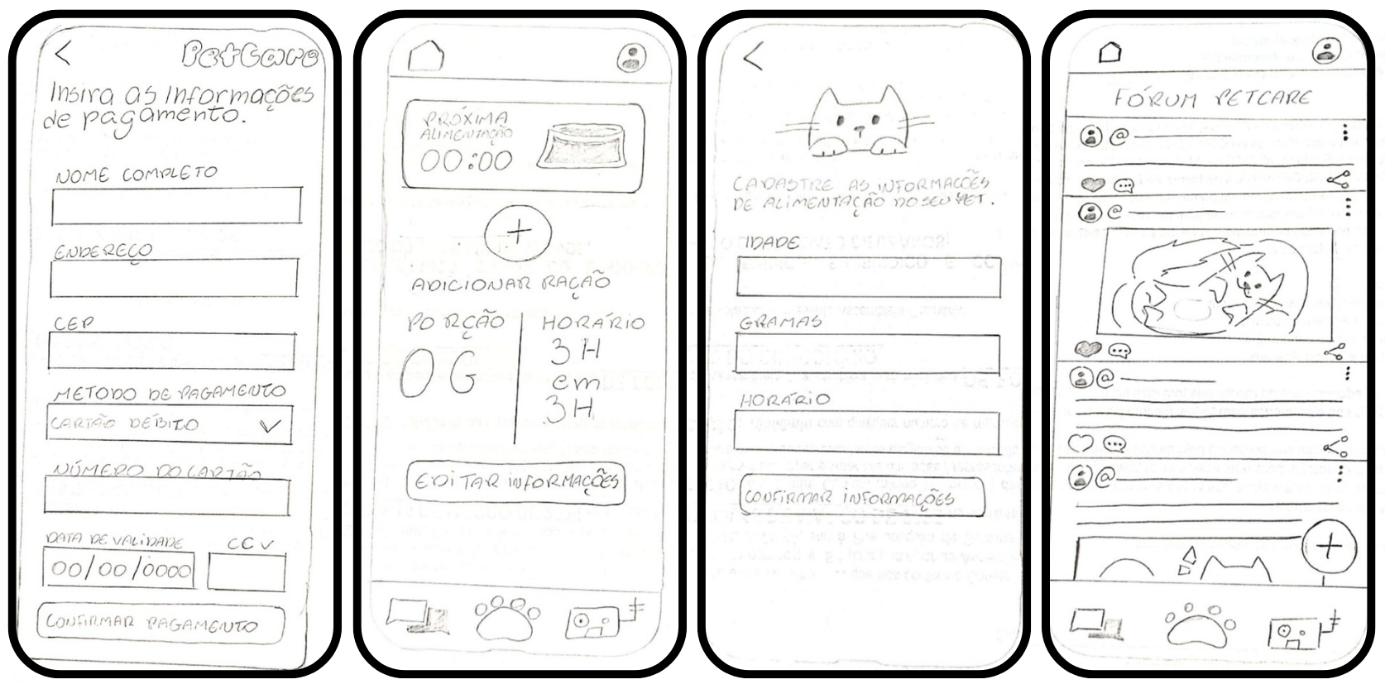 PetCare
Insira as Informações
de pagamento.
NOME COMPLETO
ENDEREÇO
CEP
METODO DE PAGAMENTO
CARTÃO DÉBITO
NÚMERO DO CARTÃO
DATA DE VALIDADE
CCV
00/00/0000
CONFIRMAR PAGAMENTO
PRÓXIMA
ALIMENTAÇÃO
00:00
+
ADICIONAR RAÇÃO
PORÇÃO
0G
HORÁRIO
3H
em
3H
EDITAR INFORMAÇÕES
CADASTRE AS INFORMACÕES
DE ALIMENTAÇÃO DO SEU PET.
IDADE
GRAMAS
HORÁRIO
CONFIRMAR INFORMAÇÕES
FÓRUM PETCARE
@
@
@
@
+